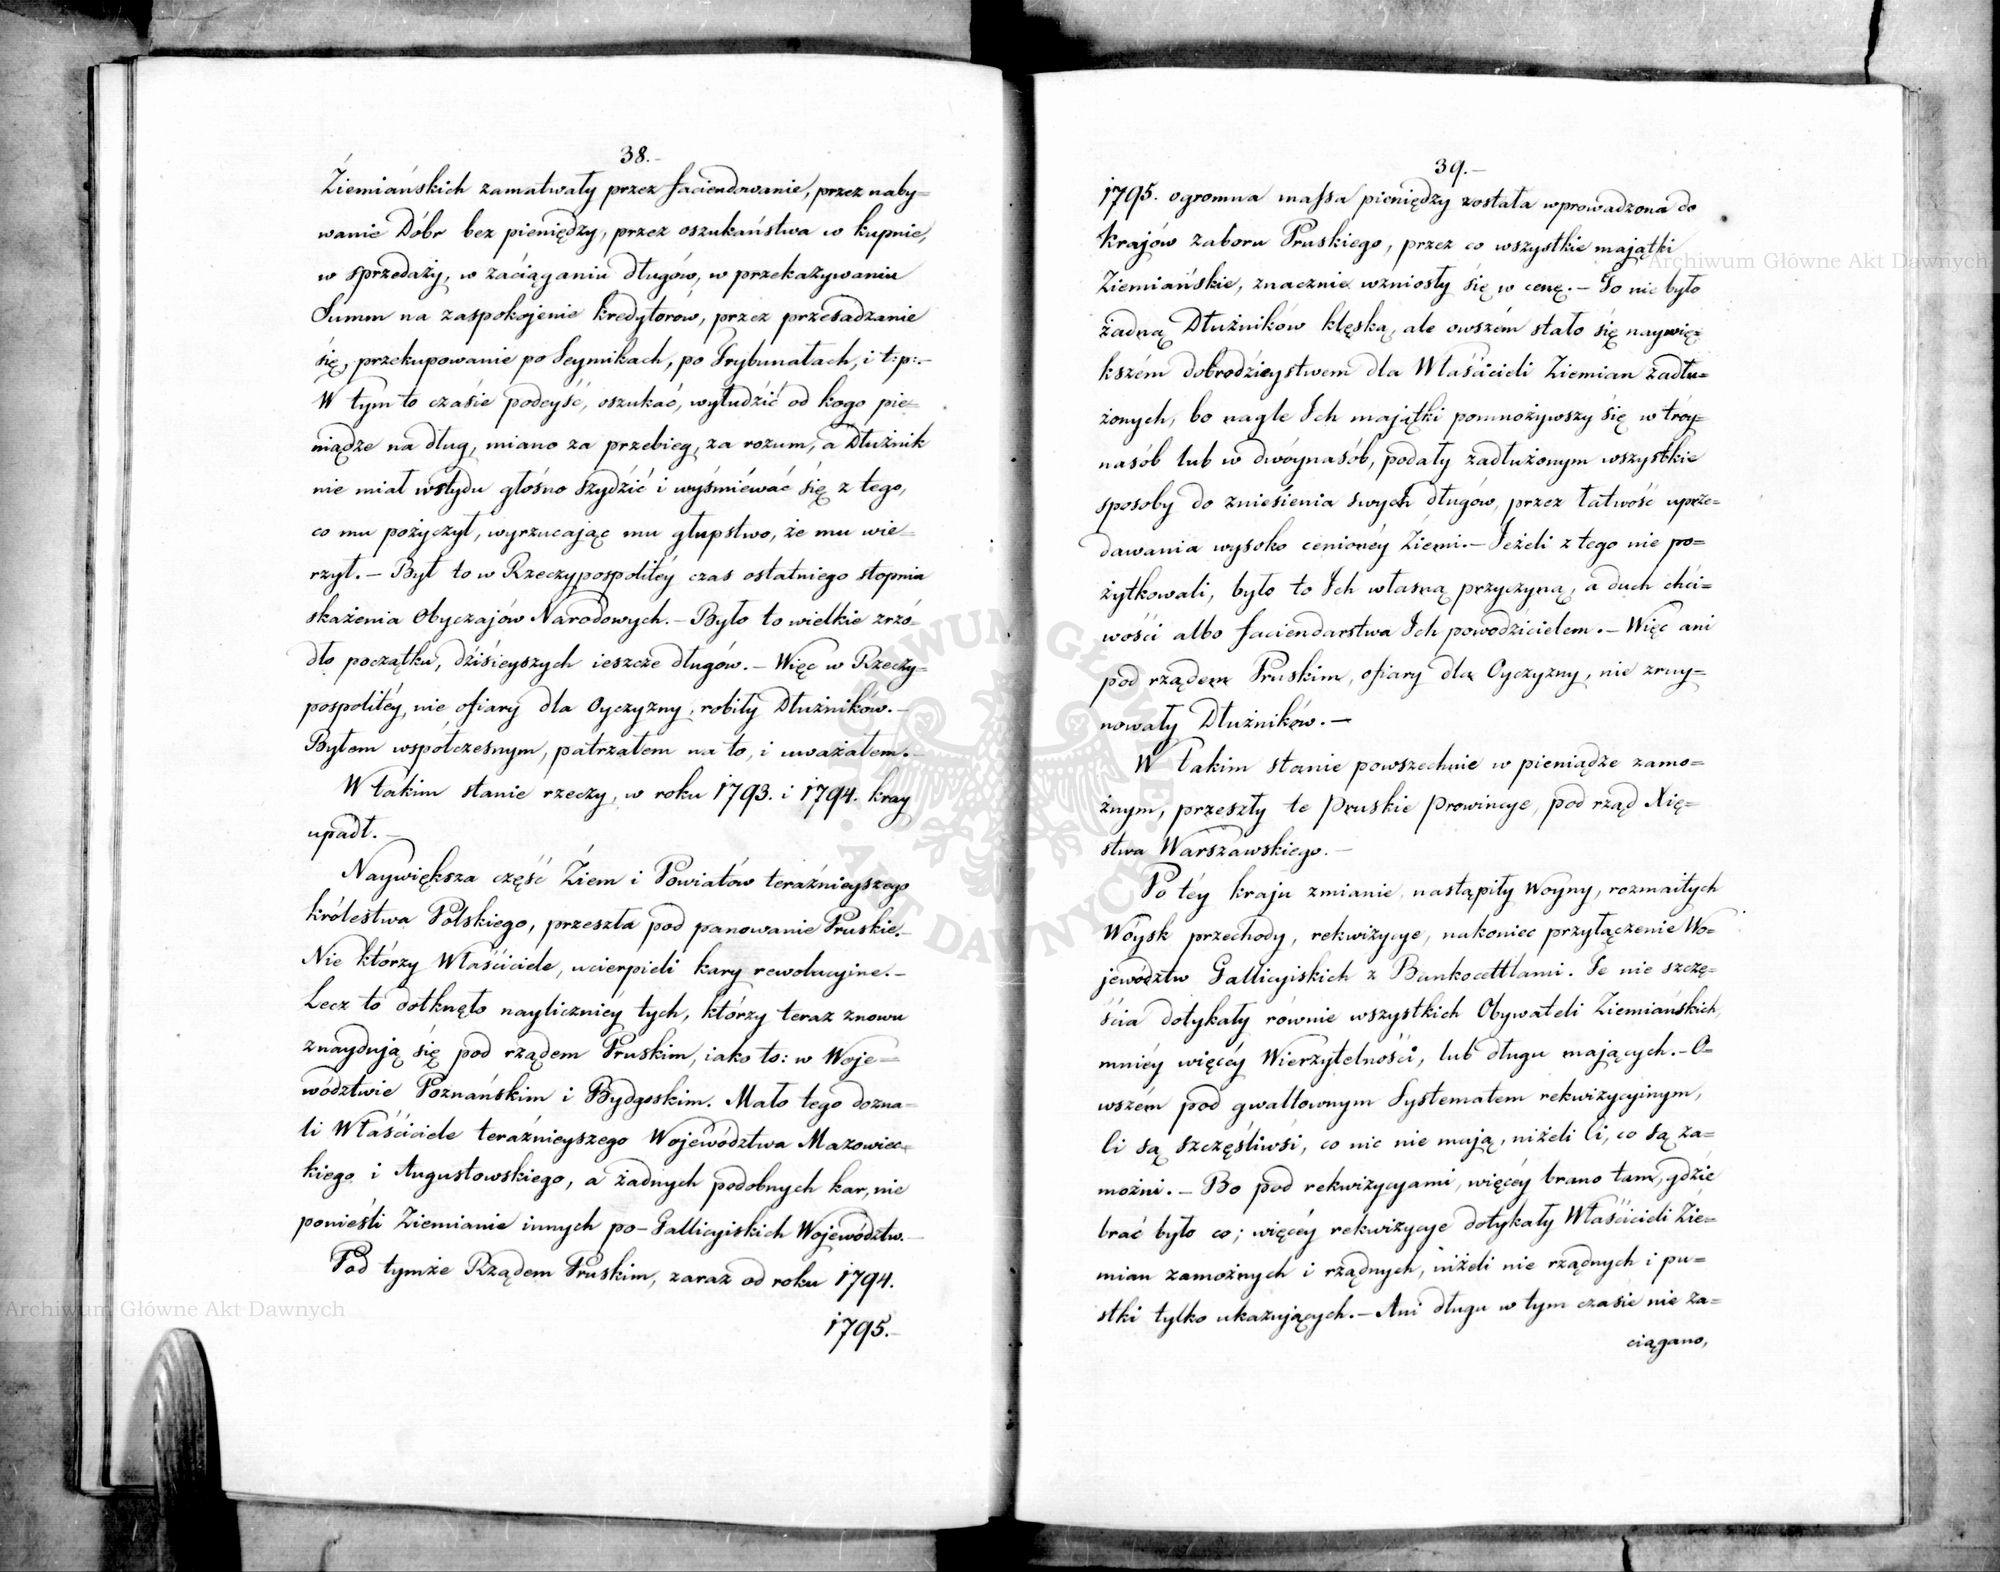 38.-
Ziemiańskich zamatwały przez faciendowanie, przez naby=
wanie Dóbr bez pieniędzy, przez oszukaństwa w kupnie,
w sprzedaży, w zaciąganiu długów, w przekazywaniu
Summ na zaspokojenie kredytorów, przez przesadzanie
się, przekupowanie po Seymikach, po Trybunałach, i t:p:-
W tym to czasie podeyść, oszukać, wyłudzić od kogo pie=
niądze na dług, miano za przebieg, za rozum, a Dłużnik
nie miał wstydu głośno szydzić i wyśmiewać się z tego,
co mu pożyczył, wyrzucając mu głupstwo, że mu wie=
rzył.- Był to w Rzeczypospolitéy czas ostatniego stopnia
skażenia Obyczajów Narodowych.- Było to wielkie zrzó-
dło początku, dzisieyszych ieszcze długów.- Więc w Rzeczy=
pospolitéy, nie ofiary dla Oyczyzny, robiły Dłużników.-
Byłem współczesnym, patrzałem na to, i uważałem.-
W takim stanie rzeczy, w roku 1793. i 1794. kray
upadł.-
Naywiększa część Ziem i Powiatów teraźnieyszego
królestwa Polskiego, przeszła pod panowanie Pruskie.-
Nie którzy Właściciele, ucierpieli kary rewolucyine.-
Lecz to dotknęło nayliczniéy tych, którzy teraz znowu
znaydują się pod rządem Pruskim, iako to: w Woje=
wództwie Poznańskim i Bydgoskim. Mało tego dozna-
li Właściciele teraźnieyszego Województwa Mazowiec=
kiego i Augustowskiego, a żadnych podobnych kar, nie
ponieśli Ziemianie innych po-Gallicyiskich Województw.-
Pod tymże Rządem Pruskim, zaraz od roku 1794.
1795.-
39.-
1795. ogromna massa pieniędzy została wprowadzona do
krajów zaboru Pruskiego, przez co wszystkie majątki
Ziemiańskie, znacznie wzniosły się w cenę.- To nie było
żadną Dłużników klęską, ale owszém stało się naywię=
kszém dobrodzieystwem dla Właścicieli Ziemian zadłu=
żonych, bo nagle Ich majątki pomnożywszy się w tróy=
nasób lub w dwóynasób, podały zadłużonym wszystkie
sposoby do zniesienia swych długów, przez łatwość uprze=
dawania wysoko cenionéy Ziemi.- Jeżeli z tego nie po=
żytkowali, było to Ich własną przyczyną, a duch chci=
wości albo faciendarstwa Ich powodzicielem.- Więc ani
pod rządem Pruskim, ofiary dla Oyczyzny, nie zruy=
nowały Dłużników.-
W takim stanie powszechnie w pieniądze zamo=
żnym, przeszły te Pruskie Prowincye, pod rząd Xię=
stwa Warszawskiego.-
Po téy kraju zmianie, nastąpiły Woyny, rozmaitych
Wóysk przechody, rekwizycye, nakoniec przyłączenie Wo=
jewództw Gallicyiskich z Bankocettlami. Te nie szczę=
ścia dotykały równie wszystkich Obywateli Ziemiańskich,
mniéy więcéy Wierzytelności, lub długu mających.- O=
wszém pod gwałtownym Systematem rekwizycyinym,
Ci są szczęśliwsi, co nic nie mają, niżeli Ci, co są za=
możni.- Bo pod rekwizycyami, więcéy brano tam, gdzie
brać było co; więcéy rekwizycye dotykały Właścicieli Zie=
mian zamożnych i rządnych, niżeli nie rządnych i pu=
stki tylko ukazujących.- Ani długu w tym czasie nie za=
ciągano,
Archiwum Główne Akt Dawnych
Archiwum Główne Akt Dawnych
ARCHIWUM GŁÓWNE AKT DAWNYCH